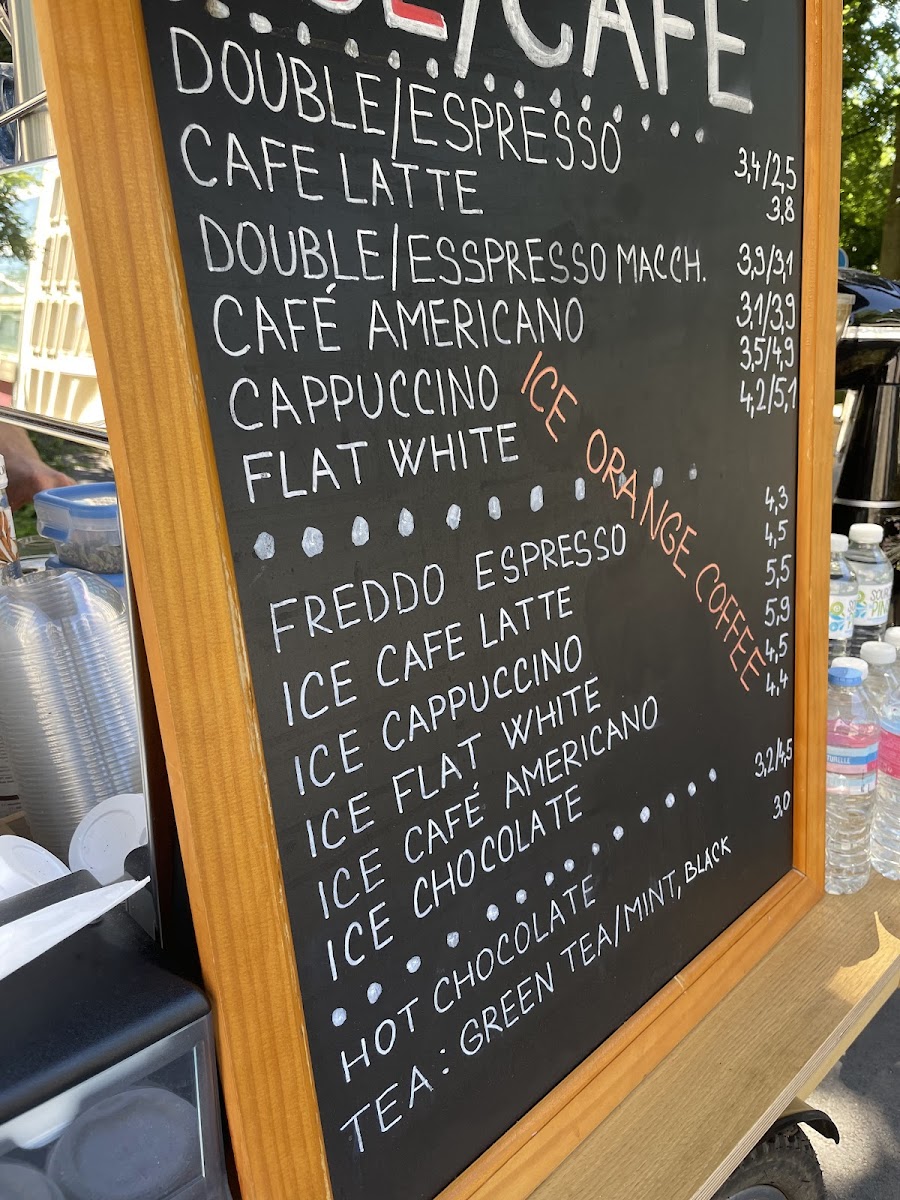 /CAFE
DOUBLE/ESPRESSO 3,4/2,5
CAFE LATTE 3,8
DOUBLE/ESSPRESSO MACCH. 3,9/3,1
CAFÉ AMERICANO 3,1/3,9
CAPPUCCINO 3,5/4,9
FLAT WHITE 4,2/5,1
ICE ORANGE COFFEE
FREDDO ESPRESSO 4,3
ICE CAFE LATTE 4,5
ICE CAPPUCCINO 5,5
ICE FLAT WHITE 5,9
ICE CAFÉ AMERICANO 4,5
ICE CHOCOLATE 4,4
HOT CHOCOLATE 3,2/4,5
TEA: GREEN TEA/MINT, BLACK 3,0